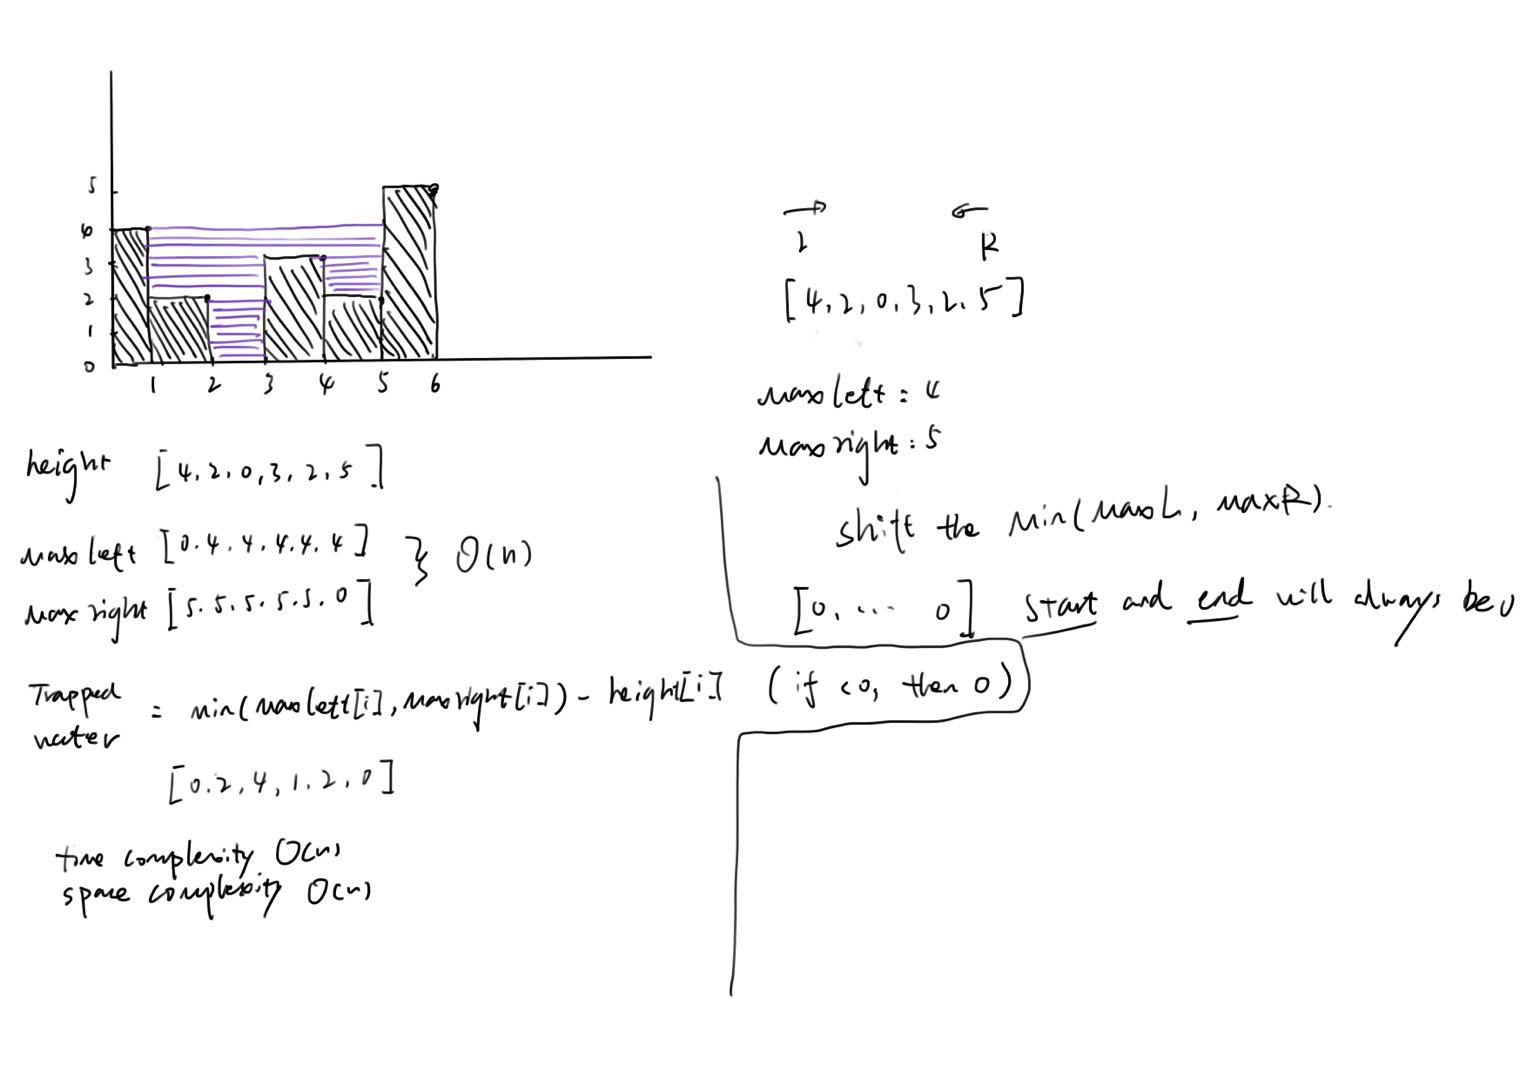 5
4
3
2
1
0
1 2 3 4 5 6
height [4, 2, 0, 3, 2, 5]
max left [0, 4, 4, 4, 4, 4] } O(n)
max right [5, 5, 5, 5, 5, 0]
Trapped water = min(maxleft[i], maxright[i]) - height[i] (if <0, then 0)
[0, 2, 4, 1, 2, 0]
time complexity O(n)
space complexity O(n)
→ ←
L R
[4, 2, 0, 3, 2, 5]
max left: 4
max right: 5
shift the Min(maxL, maxR).
[0, ... 0] start and end will always be 0